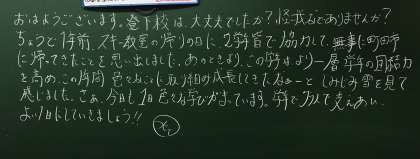 おはようございます。登下校は、大丈夫でしたか？怪我などありませんか？
ちょうど1年前、スキー教室の帰りの日に、2学年皆で協力して、無事に町田市
に帰ってきたことを思い出しました。あのときより、この学年はより一層学年の団結力
を高め、この1年間 色々なことに取り組み成長してきたなぁーと しみじみ雪を見て
感じました。さぁ、今日も1日色々な学びがまっています。学年で力を 支えあい、
よい1日にしていきましょう!!